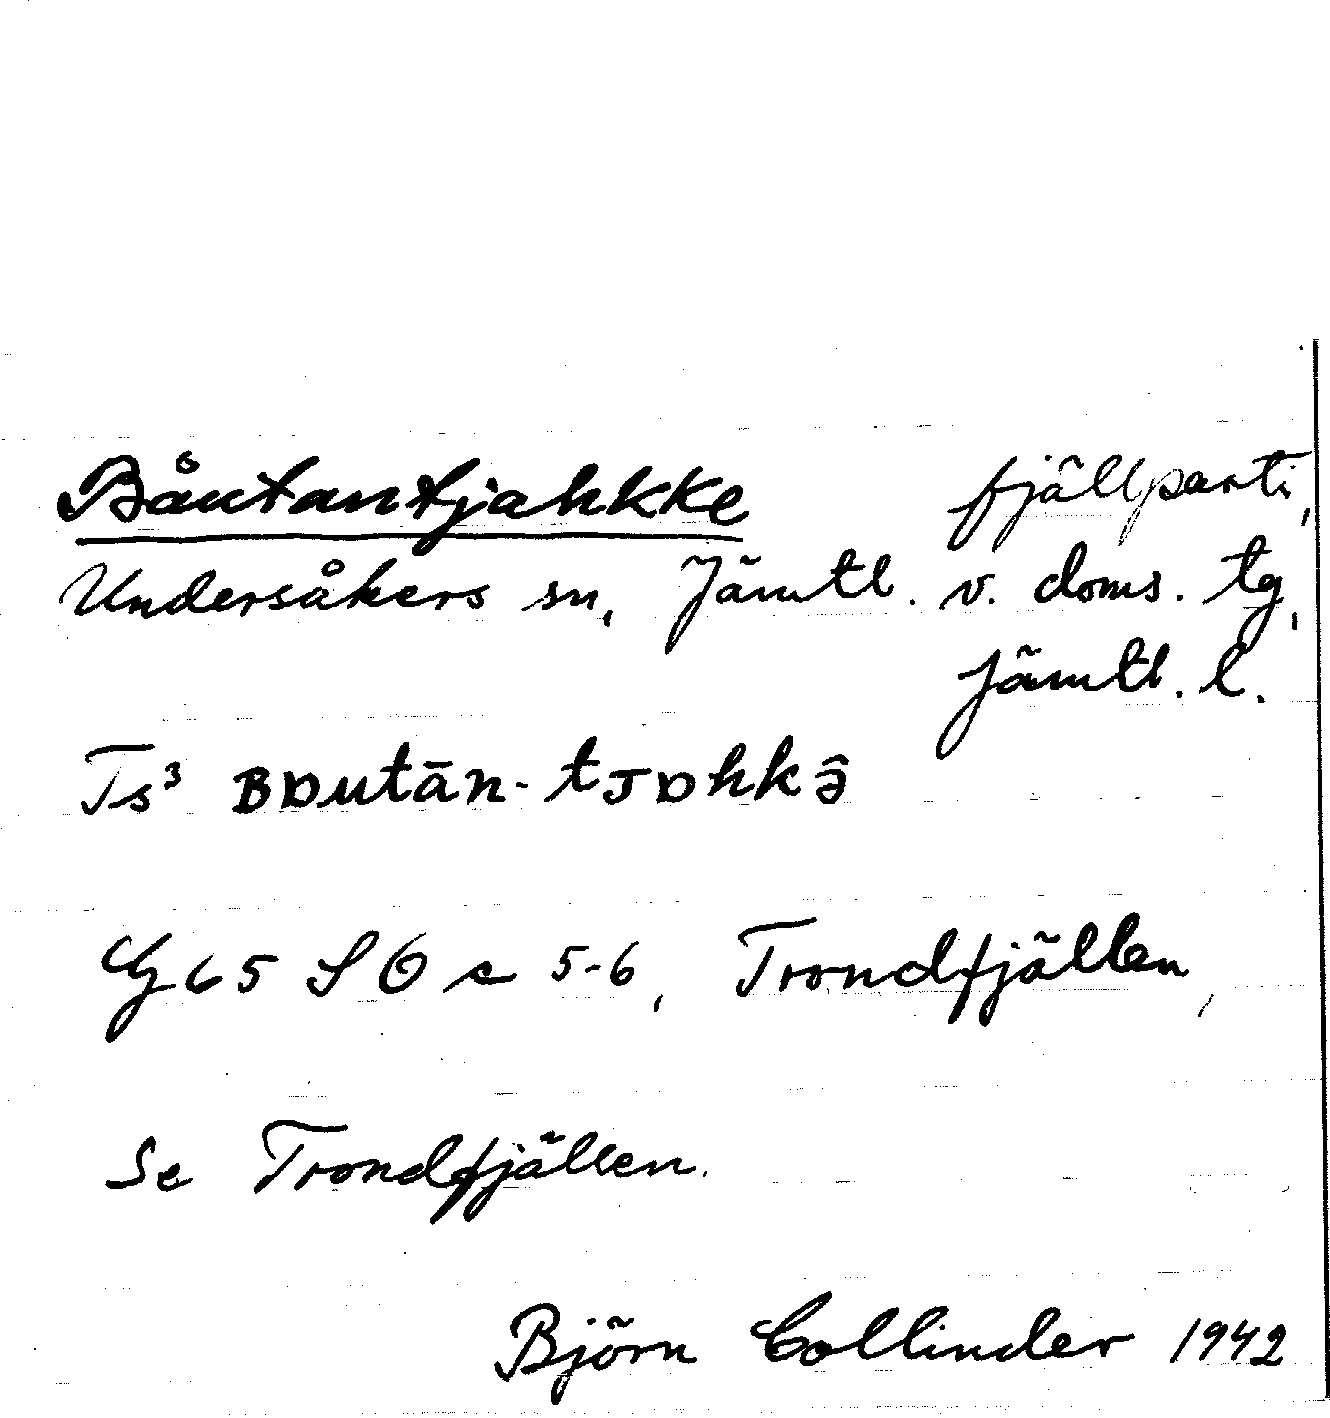 Båutantjahkke fjällparti,
Undersåkers sn, Jämtl. v. doms. tg,
Jämtl. l.
Ts³ ʙᴅutān-tᴊᴅhkə̂
G 65 SO c 5-6, Trondfjällen,
Se Trondfjällen.
Björn Collinder 1942